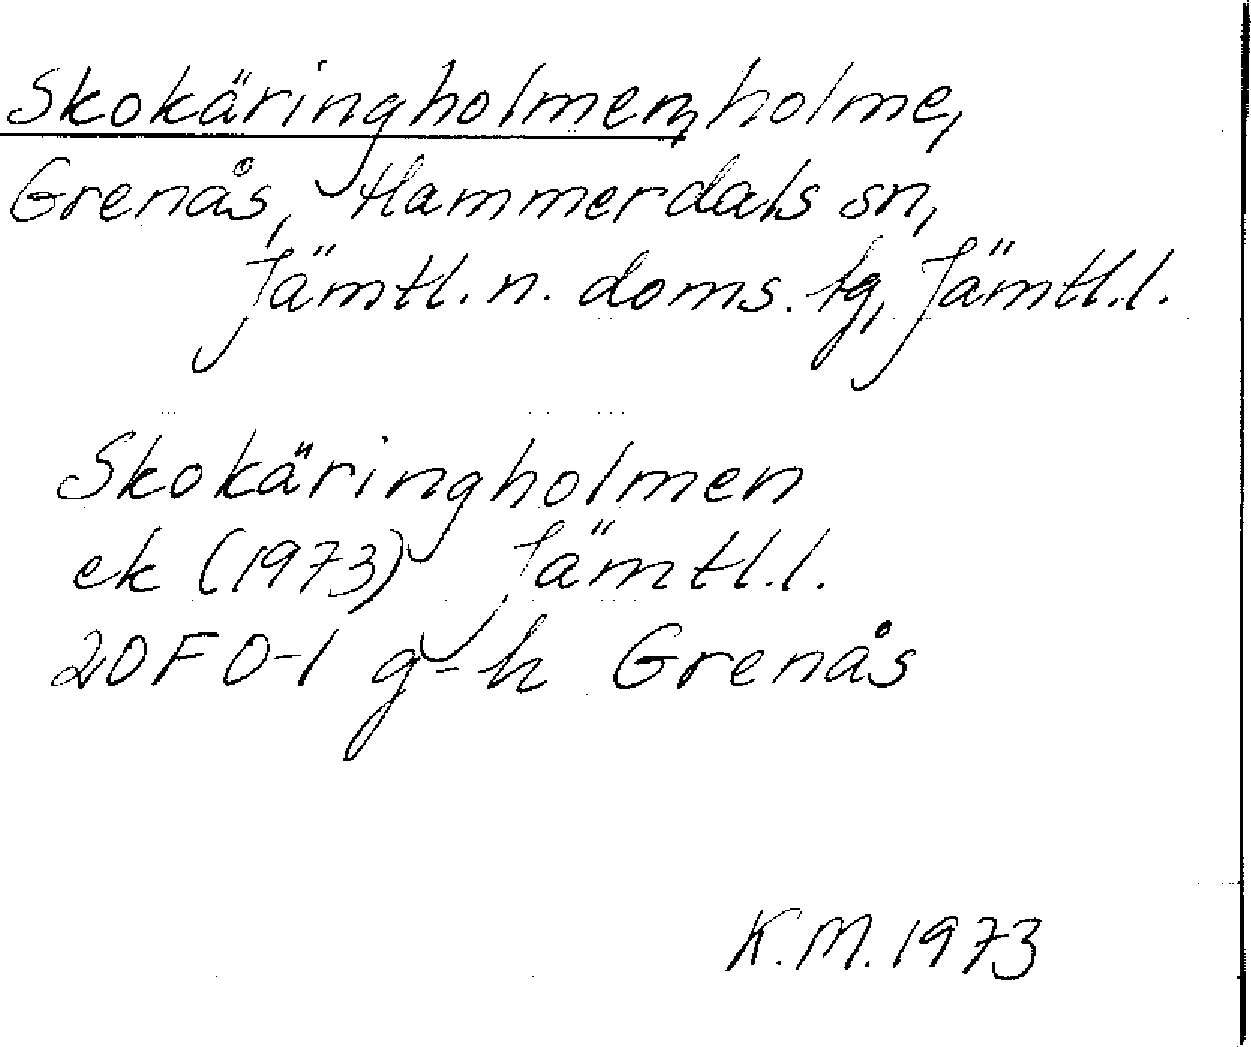 Skokäringholmen, holme,
Grenås, Hammerdals sn,
Jämtl. n. doms. tg, Jämtl. l.
Skokäringholmen
ek (1973) Jämtl. l.
20F 0-1 g-h Grenås
K.M. 1973